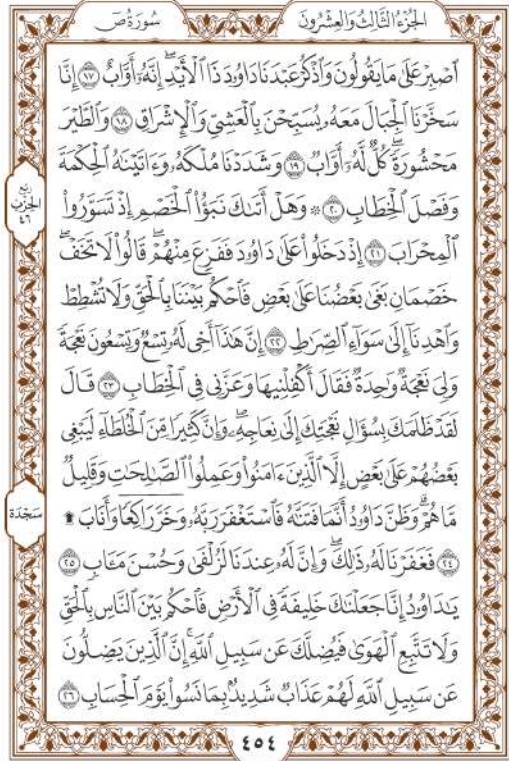 الجُزْءُ الثَّالِثُ وَالعِشْرُونَ
سُورَةُ صٓ
ٱصۡبِرۡ عَلَىٰ مَا يَقُولُونَ وَٱذۡكُرۡ عَبۡدَنَا دَاوُۥدَ ذَا ٱلۡأَيۡدِۖ إِنَّهُۥٓ أَوَّابٌ ۝١٧ إِنَّا
سَخَّرۡنَا ٱلۡجِبَالَ مَعَهُۥ يُسَبِّحۡنَ بِٱلۡعَشِيِّ وَٱلۡإِشۡرَاقِ ۝١٨ وَٱلطَّيۡرَ
مَحۡشُورَةٗۖ كُلّٞ لَّهُۥٓ أَوَّابٞ ۝١٩ وَشَدَدۡنَا مُلۡكَهُۥ وَءَاتَيۡنَٰهُ ٱلۡحِكۡمَةَ
وَفَصۡلَ ٱلۡخِطَابِ ۝٢٠ ۞ وَهَلۡ أَتَىٰكَ نَبَؤُاْ ٱلۡخَصۡمِ إِذۡ تَسَوَّرُواْ
ٱلۡمِحۡرَابَ ۝٢١ إِذۡ دَخَلُواْ عَلَىٰ دَاوُۥدَ فَفَزِعَ مِنۡهُمۡۖ قَالُواْ لَا تَخَفۡۖ
خَصۡمَانِ بَغَىٰ بَعۡضُنَا عَلَىٰ بَعۡضٖ فَٱحۡكُم بَيۡنَنَا بِٱلۡحَقِّ وَلَا تُشۡطِطۡ
وَٱهۡدِنَآ إِلَىٰ سَوَآءِ ٱلصِّرَٰطِ ۝٢٢ إِنَّ هَٰذَآ أَخِي لَهُۥ تِسۡعٞ وَتِسۡعُونَ نَعۡجَةٗ
وَلِيَ نَعۡجَةٞ وَٰحِدَةٞ فَقَالَ أَكۡفِلۡنِيهَا وَعَزَّنِي فِي ٱلۡخِطَابِ ۝٢٣ قَالَ
لَقَدۡ ظَلَمَكَ بِسُؤَالِ نَعۡجَتِكَ إِلَىٰ نِعَاجِهِۦۖ وَإِنَّ كَثِيرٗا مِّنَ ٱلۡخُلَطَآءِ لَيَبۡغِي
بَعۡضُهُمۡ عَلَىٰ بَعۡضٍ إِلَّا ٱلَّذِينَ ءَامَنُواْ وَعَمِلُواْ ٱلصَّٰلِحَٰتِ وَقَلِيلٞ
مَّا هُمۡۗ وَظَنَّ دَاوُۥدُ أَنَّمَا فَتَنَّٰهُ فَٱسۡتَغۡفَرَ رَبَّهُۥ وَخَرَّۤ رَاكِعٗاۤ وَأَنَابَ ۩
۝٢٤ فَغَفَرۡنَا لَهُۥ ذَٰلِكَۖ وَإِنَّ لَهُۥ عِندَنَا لَزُلۡفَىٰ وَحُسۡنَ مَـَٔابٖ ۝٢٥
يَٰدَاوُۥدُ إِنَّا جَعَلۡنَٰكَ خَلِيفَةٗ فِي ٱلۡأَرۡضِ فَٱحۡكُم بَيۡنَ ٱلنَّاسِ بِٱلۡحَقِّ
وَلَا تَتَّبِعِ ٱلۡهَوَىٰ فَيُضِلَّكَ عَن سَبِيلِ ٱللَّهِۚ إِنَّ ٱلَّذِينَ يَضِلُّونَ
عَن سَبِيلِ ٱللَّهِ لَهُمۡ عَذَابٞ شَدِيدُۢ بِمَا نَسُواْ يَوۡمَ ٱلۡحِسَابِ ۝٢٦
ربع
الحزب
٤٦
سَجْدَة
٤٥٤